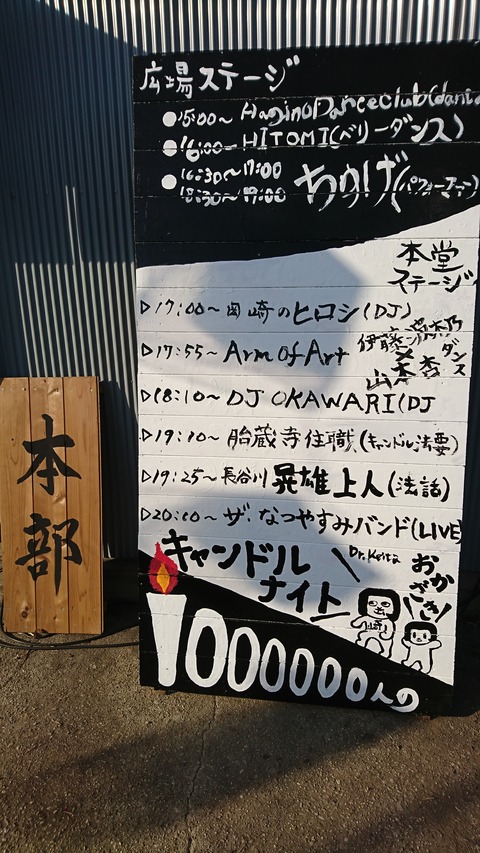 広場ステージ
●15:00〜 HaginoDanceClub(danc
●16:00〜 HITOMI(ベリーダンス)
●16:30〜17:00
18:30〜19:00 ちゅうげ(パフォーマー)
本堂
ステージ
▷17:00〜 岡崎のヒロシ(DJ)
▷17:55〜 Arm of Art 伊藤
ダンス
▷18:10〜 DJ OKAWARI(DJ
▷19:10〜 胎蔵寺住職(キャンドル法要)
▷19:25〜 長谷川 晃雄上人(法話)
▷20:10〜 ザ・なつやすみバンド(LIVE)
キャンドル
ナイト
Dr.Keita
おか
ざき!
1000000人の
本部